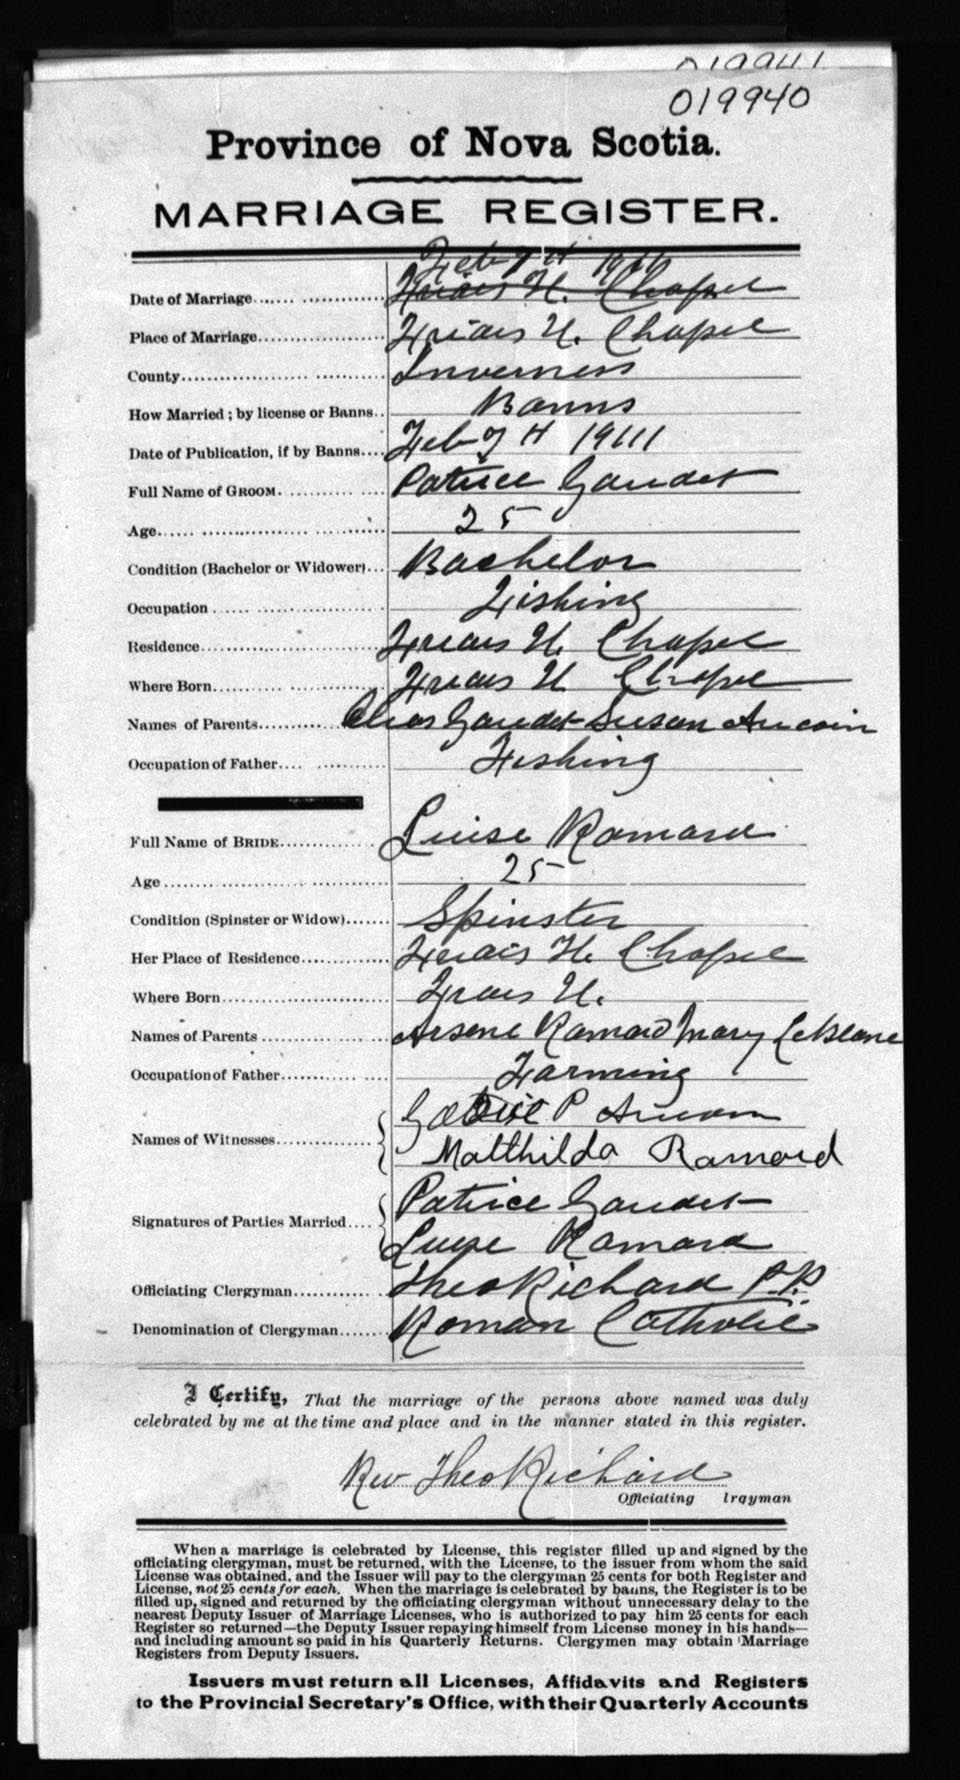 019941
019940
Province of Nova Scotia.
MARRIAGE REGISTER.
Feb 7 H 1911
Date of Marriage Friars H. Chapel
Place of Marriage Friars H. Chapel
County Inverness
How Married; by license or Banns.. Banns
Date of Publication, if by Banns.... Feb 7 H 1911
Full Name of GROOM. Patrice Gaudet
Age 25
Condition (Bachelor or Widower)... Bachelor
Occupation Fishing
Residence Friars H. Chapel
Where Born Friars H Chapel
Names of Parents Gaudet Susan Aucoin
Occupation of Father.... Fishing
Full Name of BRIDE Luise Romard
Age 25
Condition (Spinster or Widow) Spinster
Her Place of Residence Friars H. Chapel
Where Born Friars H.
Names of Parents Arsene Romard Mary LeBlanc
Occupation of Father Farming
P Aucoin
Names of Witnesses
Matthilda Romard
Patrice Gaudet
Signatures of Parties Married....
Luise Romard
Officiating Clergyman Theo Richard P.P.
Denomination of Clergyman Roman Catholic
I Certify, That the marriage of the persons above named was duly
celebrated by me at the time and place and in the manner stated in this register.
Rev Theo Richard
Officiating lrgyman
When a marriage is celebrated by License, this register filled up and signed by the
officiating clergyman, must be returned, with the License, to the issuer from whom the said
License was obtained, and the Issuer will pay to the clergyman 25 cents for both Register and
License, not 25 cents for each. When the marriage is celebrated by banns, the Register is to be
filled up, signed and returned by the officiating clergyman without unnecessary delay to the
nearest Deputy Issuer of Marriage Licenses, who is authorized to pay him 25 cents for each
Register so returned—the Deputy Issuer repaying himself from License money in his hands—
and including amount so paid in his Quarterly Returns. Clergymen may obtain Marriage
Registers from Deputy Issuers.
Issuers must return all Licenses, Affidavits and Registers
to the Provincial Secretary's Office, with their Quarterly Accounts